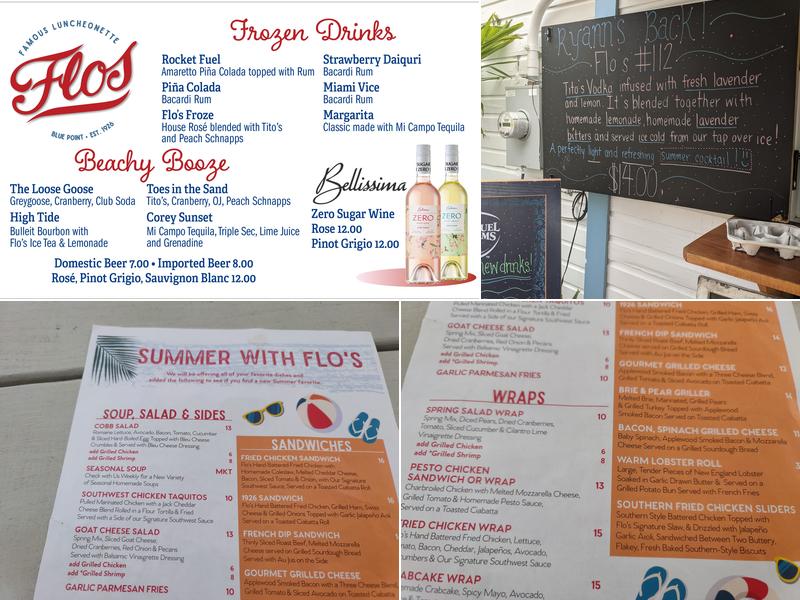 FAMOUS LUNCHEONETTE
Flos
BLUE POINT • EST. 1926
Frozen Drinks
Rocket Fuel
Amaretto Piña Colada topped with Rum
Piña Colada
Bacardi Rum
Flo's Froze
House Rosé blended with Tito's
and Peach Schnapps
Strawberry Daiquri
Bacardi Rum
Miami Vice
Bacardi Rum
Margarita
Classic made with Mi Campo Tequila
Beachy Booze
The Loose Goose
Greygoose, Cranberry, Club Soda
High Tide
Bulleit Bourbon with
Flo's Ice Tea & Lemonade
Toes in the Sand
Tito's, Cranberry, OJ, Peach Schnapps
Corey Sunset
Mi Campo Tequila, Triple Sec, Lime Juice
and Grenadine
Domestic Beer 7.00 • Imported Beer 8.00
Rosé, Pinot Grigio, Sauvignon Blanc 12.00
Bellissima
Zero Sugar Wine
Rose 12.00
Pinot Grigio 12.00
ZERO
ZERO
Ryann's Back!
Flo's #112
Tito's Vodka infused with fresh lavender
and lemon. It's blended together with
homemade lemonade, homemade lavender
bitters and served ice cold from our tap over ice!
A perfectly light and refreshing summer cocktail!!
$14.00
new drinks!
SUMMER WITH FLO'S
We will be offering all of your favorite dishes and
added the following to see if you find a new Summer favorite.
SOUP, SALAD & SIDES
COBB SALAD 13
Romaine Lettuce, Avocado, Bacon, Tomato, Cucumber
& Sliced Hard Boiled Egg Topped with Bleu Cheese
Crumbles & Served with Bleu Cheese Dressing.
add Grilled Chicken 6
add *Grilled Shrimp 8
SEASONAL SOUP MKT
Check with Us Weekly for a New Variety
of Seasonal Homemade Soups
SOUTHWEST CHICKEN TAQUITOS 10
Pulled Marinated Chicken with a Jack Cheddar
Cheese Blend Rolled in a Flour Tortilla & Fried
Served with a Side of our Signature Southwest Sauce
GOAT CHEESE SALAD 13
Spring Mix, Sliced Goat Cheese,
Dried Cranberries, Red Onion & Pecans
Served with Balsamic Vinaigrette Dressing
add Grilled Chicken 6
add *Grilled Shrimp 8
GARLIC PARMESAN FRIES 10
SANDWICHES
FRIED CHICKEN SANDWICH 16
Flo's Hand Battered Fried Chicken with
Homemade Coleslaw, Melted Cheddar Cheese,
Bacon, Sliced Tomato & Onion, with Our Signature
Southwest Sauce, Served on a Toasted Ciabatta Roll
1926 SANDWICH 16
Flo's Hand Battered Fried Chicken, Grilled Ham, Swiss
Cheese & Grilled Onions Topped with Garlic Jalapeño Aioli
Served on a Toasted Ciabatta Roll
FRENCH DIP SANDWICH
Thinly Sliced Roast Beef, Melted Mozzarella
Cheese served on Grilled Sourdough Bread
Served with Au Jus on the Side
GOURMET GRILLED CHEESE
Applewood Smoked Bacon with a Three Cheese Blend,
Grilled Tomato & Sliced Avocado on Toasted Ciabatta
Pulled Marinated Chicken with a Jack Cheddar
Cheese Blend Rolled in a Flour Tortilla & Fried
Served with a Side of our Signature Southwest Sauce
GOAT CHEESE SALAD 13
Spring Mix, Sliced Goat Cheese,
Dried Cranberries, Red Onion & Pecans
Served with Balsamic Vinaigrette Dressing
add Grilled Chicken 6
add *Grilled Shrimp 8
GARLIC PARMESAN FRIES 10
WRAPS
SPRING SALAD WRAP 10
Spring Mix, Diced Pears, Dried Cranberries,
Tomato, Sliced Cucumber & Cilantro Lime
Vinaigrette Dressing
add Grilled Chicken 6
add *Grilled Shrimp 8
PESTO CHICKEN
SANDWICH OR WRAP 13
Charbroiled Chicken with Melted Mozzarella Cheese,
Grilled Tomato & Homemade Pesto Sauce,
Served on a Toasted Ciabatta Roll
FRIED CHICKEN WRAP 15
Hand Battered Fried Chicken, Lettuce,
Tomato, Bacon, Cheddar, Jalapeños, Avocado,
& Our Signature Southwest Sauce
WRAP 15
Crabcake, Spicy Mayo, Avocado,
1926 SANDWICH
Flo's Hand Battered Fried Chicken, Grilled Ham, Swiss
Cheese & Grilled Onions Topped with Garlic Jalapeño Aioli
Served on a Toasted Ciabatta Roll
FRENCH DIP SANDWICH 14
Thinly Sliced Roast Beef, Melted Mozzarella
Cheese served on Grilled Sourdough Bread
Served with Au Jus on the Side
GOURMET GRILLED CHEESE
Applewood Smoked Bacon with a Three Cheese Blend,
Grilled Tomato & Sliced Avocado on Toasted Ciabatta
BRIE & PEAR GRILLER
Melted Brie, Marinated, Grilled Pears
& Grilled Turkey Topped with Applewood
Smoked Bacon Served on a Toasted Ciabatta
BACON, SPINACH GRILLED CHEESE
Baby Spinach, Applewood Smoked Bacon & Mozzarella
Cheese Served on a Grilled Sourdough Bread
WARM LOBSTER ROLL
Large, Tender Pieces of New England Lobster
Soaked in Garlic Drawn Butter & Served on a
Grilled Potato Bun Served with French Fries
SOUTHERN FRIED CHICKEN SLIDERS
Southern Style Battered Chicken Topped with
Flo's Signature Slaw, & Drizzled with Jalapeño
Garlic Aioli, Sandwiched Between Two Buttery,
Flakey, Fresh Baked Southern-Style Biscuits